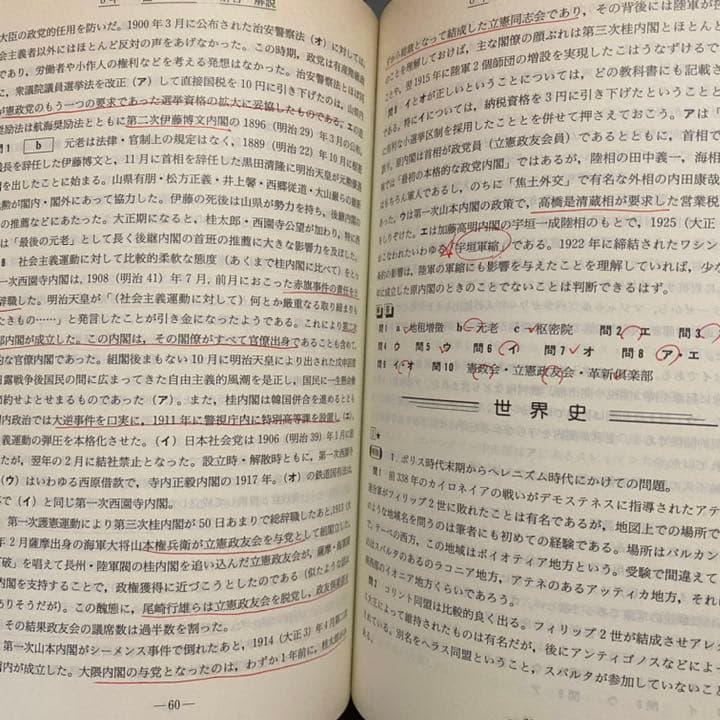 大臣の政党的任用を防いだ。1900年3月に公布された治安警察法(オ)に対しては、
会主義者以外にはほとんど反対の声をあげなかった。この時期、政党は有産階級
であり、労働者や小作人の権利などを考える発想はなかった。治安警察法とほぼ同
に、衆議院議員選挙法を改正(ア)して直接国税を10円に引き下げたのは、山県内
が憲政党のもう一つの要求であった選挙資格の拡大に妥協したものである。エの造
奨励法は航海奨励法とともに第二次伊藤博文内閣の1896(明治29)年3月の公布。
問1 b 元老は法律・官制上の規定はなく、1889(明治22)年10月に枢密
議長を辞任した伊藤博文と、11月に首相を辞任した黒田清隆に明治天皇が元勲優遇
を出したことに始まる。山県有朋・松方正義・井上馨・西郷従道・大山巌らの藩閥
が閣内・閣外にあって協力した。伊藤の死後は山県が勢力を持ち、後継内閣の
の推薦などにあたった。大正期になると、桂太郎・西園寺公望が加わり、特に西
は「最後の元老」として長く後継内閣の首班の推薦に大きな影響力を及ぼした。
8 社会主義運動に対して比較的柔軟な態度(あくまで桂内閣に比べて)をとった
一次西園寺内閣は、1908(明治41)年7月、前月におこった赤旗事件の責任を
辞職した。明治天皇が「(社会主義運動に対して)何とか厳重なる取り締まり
たきもの……」と発言したことが引き金になったようである。これにより第二次
郎内閣が成立した。この内閣は、その閣僚がすべて官僚出身であることも含めて、
的な官僚内閣であった。組閣後まもない10月に明治天皇により出された戊申詔書
日露戦争後国民の間に広まってきた自由主義的風潮を是正し、国民に一生懸命
節約せよとせまるものであった(ア)。また、桂内閣は韓国併合を進めるととも
国内政治では大逆事件を口実に、1911年に警視庁内に特別高等課を設置し(エ)、
義運動の弾圧を本格化させた。(イ)日本社会党は1906(明治39)年1月に認
たが、翌年の2月に結社禁止となった。設立時・解散時ともに、第一次西園寺
(ウ)はいわゆる西原借款で、寺内正毅内閣の1917年。(オ)の鉄道国有法は、
で(イ)と同じ第一次西園寺内閣。
第一次護憲運動により第三次桂内閣が50日あまりで総辞職したあと、1913(大
年2月薩摩出身の海軍大将山本権兵衛が立憲政友会を与党として組閣した。
打破」を唱えて長州・陸軍閥の桂内閣を追い込んだ立憲政友会が、薩摩・海軍閥
内閣を支持することで、政権獲得に近づこうとしたのである(似たような話は
ありそうだが)。この醜態に、尾崎行雄らは立憲政友会を脱党し、政友倶楽部
その結果政友会の議席数は過半数を割った。
第一次山本内閣がシーメンス事件で倒れたあと、1914(大正3)年4月第二次
内閣が成立した。大隈内閣の与党となったのは、わずか1年前に、桂太郎が
―60―
ずから総裁となって結成した立憲同志会であり、その背後には陸軍が控
のことを理解しておけば、主な閣僚の顔ぶれは第三次桂内閣とほとんど
ことや、翌1915年に陸軍2個師団の増設を実現したこはうなずけるで
問8 イとオが正しいということについては、どの教科書にも記載さ
である。特にイについては、納税資格を3円に引き下げたということと
に有利な小選挙区制を採用したこととを併せて押さえておこう。アは
り、原内閣は首相が政党員(立憲政友会員)であるとともに、首相
では「最初の本格的な政党内閣」ではあるが、陸相の田中義一、海相
はもちろん軍人であるし、のちに「焦土外交」で有名な外相の内田康
あった。ウは第一次山本内閣の政策で、高橋是清蔵相が要求した営業税
をしりぞけた。エは加藤高明内閣の宇垣一成陸相のもとで、1925(大正
におこなわれたいわゆる宇垣軍縮である。1922年に締結されたワシン
約の影響は、陸軍の軍縮にも影響を与えたことを理解していれば、少な
に成立した原内閣のときのことでないことは判断できるはず。
問1 a 地租増徴 b 元老 c 枢密院 問2 エ 問3
問4 ウ 問5 ウ 問6 イ 問7 オ 問8 ア・エ
問9 イ・オ 問10 憲政会・立憲政友会・革新倶楽部
世界史
1
解説 1. ポリス時代末期からヘレニズム時代にかけての問題。
問1 前338年のカイロネイアの戦いがデモステネスに指導されたアテ
連合軍がフィリップ2世に敗れたことは有名であるが、地図上での場所で
のような地域名を問うのは筆者にも初めての経験である。場所はバルカン
で、テーベの西方、この地域はボイオティア地方という。受験で間違えて
のはスパルタのあるラコニア地方、アテネのあるアッティカ地方、それに
西岸のイオニア地方くらいであろう。
問2 コリント同盟は比較的良く出る。フィリップ2世が結成させアレク
ス大王によって維持されたものは有名だが、後にアンティゴノスなどによっ
されている。別名をヘラス同盟ということ、スパルタが参加していないこと
ある。